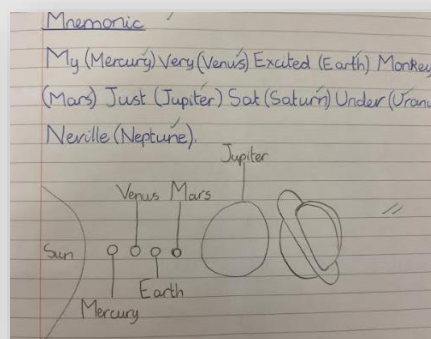 Mnemonic
My (Mercury) Very (Venus) Excited (Earth) Monkey
(Mars) Just (Jupiter) Sat (Saturn) Under (Uranu
Neville (Neptune).
Jupiter
Venus Mars
Sun
Earth
Mercury